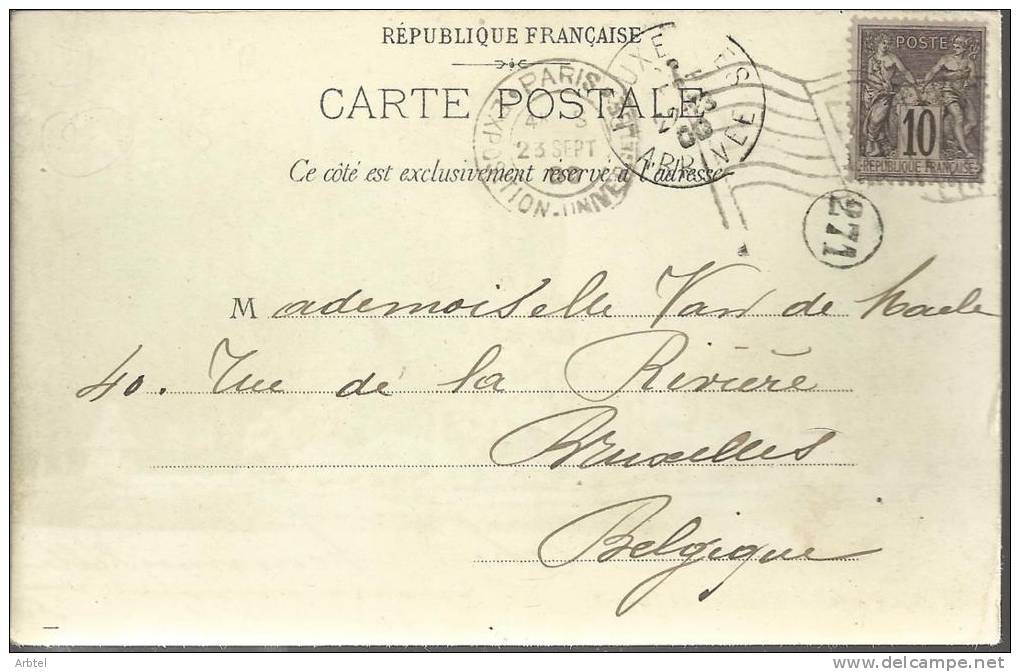 RÉPUBLIQUE FRANÇAISE
CARTE POSTALE
Ce côté est exclusivement réservé à l'adresse
PARIS EXPOSITION-UNIVERSELLE
23 SEPT
BRUXELLES
ARRIVÉE
POSTE
10
RÉPUBLIQUE FRANÇAISE
271
Mademoiselle Van de Kaele
40. Rue de la Rivière
Bruxelles
Belgique
Arbtel
delcampe.net